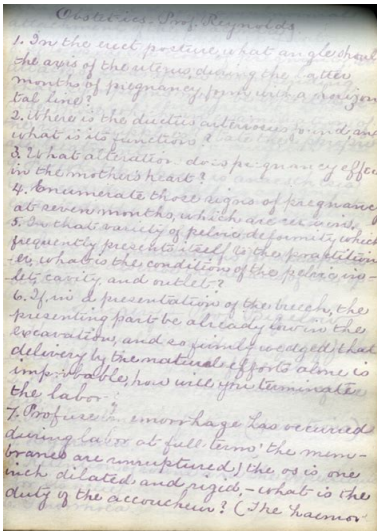 Obstetrics. Prof. Reynolds
1. In the erect posture, what angle should
the axis of the uterus, during the latter
months of pregnancy, form with a horizon
tal line?
2. Where is the ductus arteriosus found, and
what is its functions?
3. What alteration does pregnancy effect
in the mother's heart?
4. Enumerate those signs of pregnancy
at seven months, which are certain.
5. In that variety of pelvic deformity which
frequently presents itself to the practition
er, what is the conditions of the pelvic in-
let, cavity, and outlet?
6. If, in a presentation of the breech, the
presenting part be already low in the
excavation, and so firmly wedged that
delivery by the natural efforts alone is
improbable, how will you terminate
the labor?
7. Profuse hemorrhage has occurred
during labor at full term, the mem-
branes are unruptured, the os is one
inch dilated and rigid, - what is the
duty of the accoucheur? (The haemor